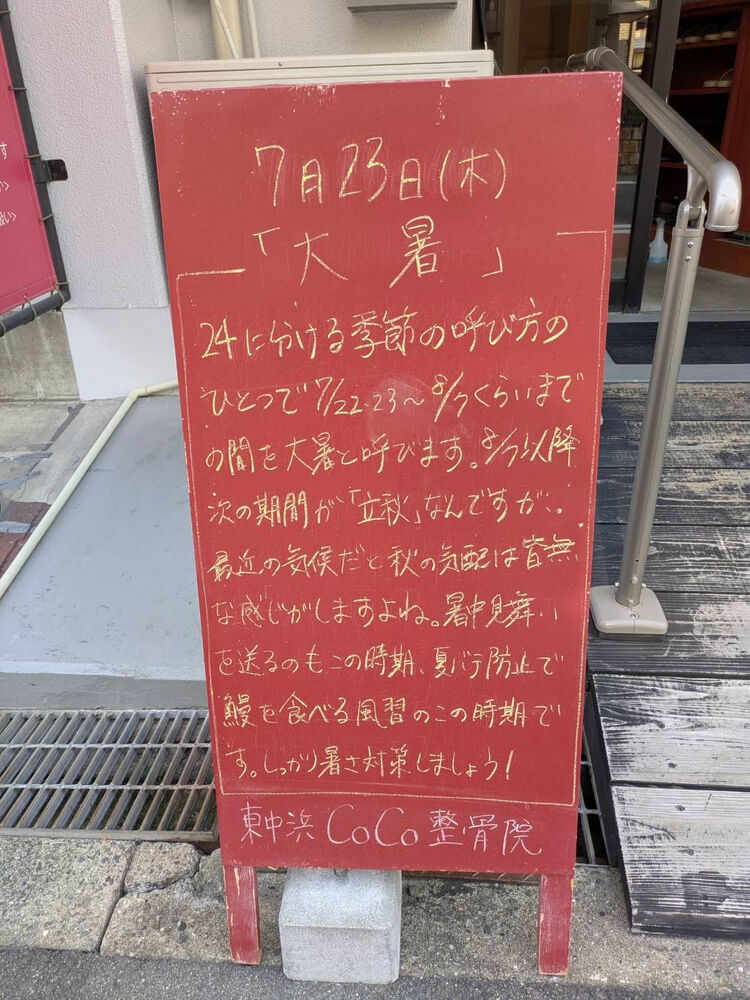 7月23日(木)
「大暑」
24に分ける季節の呼び方の
ひとつで7/22-23～8/7くらいまで
の間を大暑と呼びます。8/7以降
次の期間が「立秋」なんですが、
最近の気候だと秋の気配は皆無
な感じがしますよね。暑中見舞い
を送るのもこの時期、夏バテ防止で
鰻を食べる風習のこの時期で
す。しっかり暑さ対策しましょう！
東中浜 CoCo整骨院